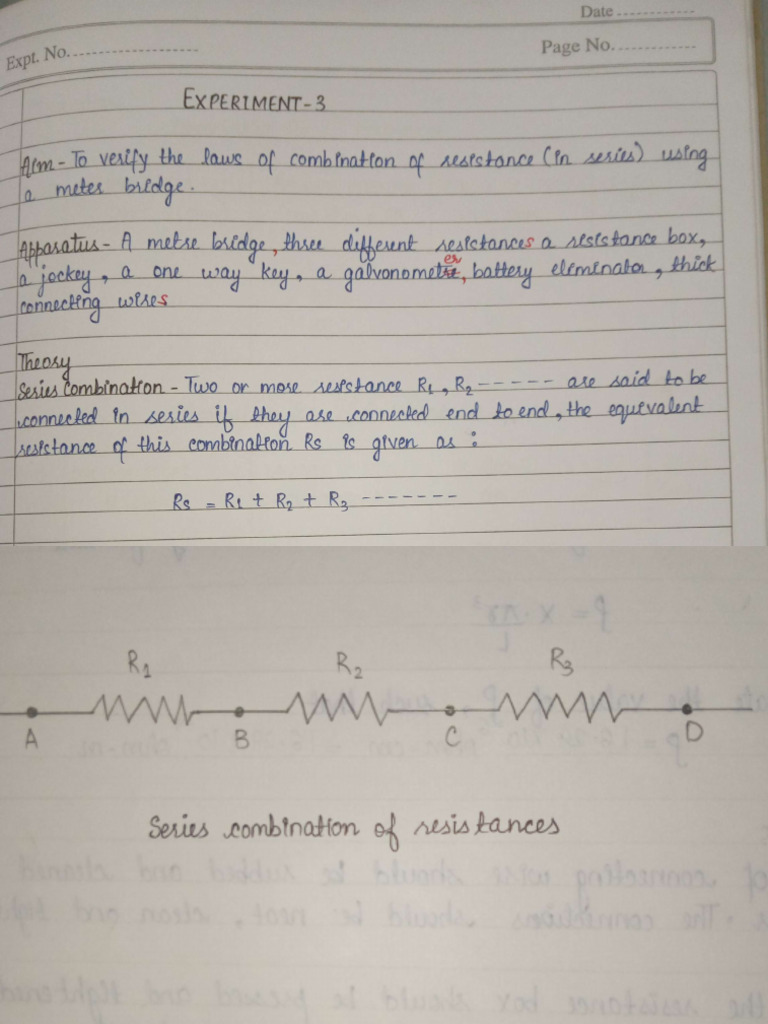 Date ............
Expt. No. ....................
Page No. ............
EXPERIMENT-3
Aim - To verify the laws of combination of resistance (in series) using
a meter bridge.
Apparatus - A metre bridge, three different resistances a resistance box,
a jockey, a one way key, a galvonometer, battery eleminator, thick
connecting wires
Theory
Series combination - Two or more resistance R₁, R₂ ----- are said to be
connected in series if they are connected end to end, the equivalent
resistance of this combination Rs is given as :
Rs = R₁ + R₂ + R₃ -------
R₁ R₂ R₃
A B C D
Series combination of resistances